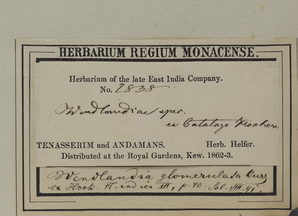 HERBARIUM REGIUM MONACENSE.
Herbarium of the late East India Company.
No. 2838
Wendlandiae spec.
ex Catalogo Hookeri
TENASSERIM and ANDAMANS. Herb. Helfer.
Distributed at the Royal Gardens, Kew. 1862-3.
Wendlandia glomerulata Kurz
ex Hook. Fl. ind. p. 40.